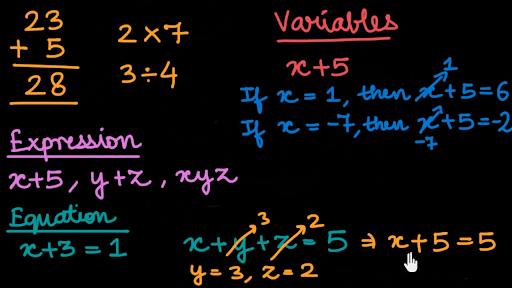 23
+ 5
28
2 × 7
3 ÷ 4
Variables
x+5
1
If x = 1, then x+5=6
If x = -7, then x+5=-2
-7
Expression
x+5, y+z, xyz
Equation
x+3 = 1
3 2
x+y+z = 5 ⇒ x+5=5
y=3, z=2